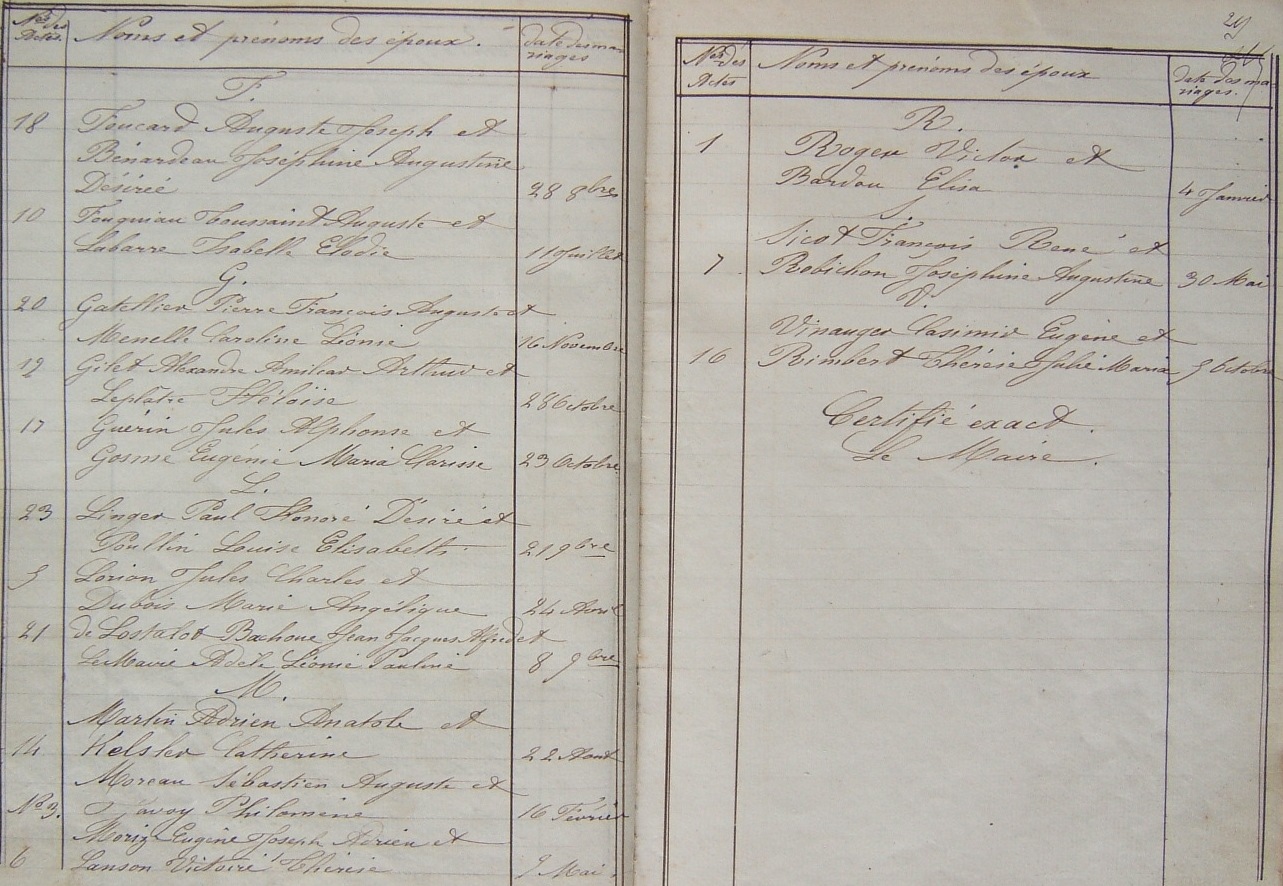 Nos des Actes. Noms et prénoms des époux. date des mariages
F.
18 Foucard Auguste Joseph et
Bénardeau Joséphine Augustine
Désirée 28 8bre
10 Fouquiau Toussaint Auguste et
Labarre Isabelle Elodie 11 Juillet
G.
20 Gatellier Pierre François Auguste et
Menelle Caroline Léonie 16 Novembre
19 Gilet Alexandre Amilcar Arthur et
Leplatre Héloïse 28 Octobre
17 Guérin Jules Alphonse et
Gosme Eugénie Maria Clarisse 23 Octobre
L.
23 Linger Paul Honoré Désiré et
Poullin Louise Elisabeth 21 9bre
5 Lorion Jules Charles et
Dubois Marie Angélique 24 Avril
21 de Lostalot Bachoue Jean Jacques Alfred et
LeMaire Adèle Léonie Pauline 8 9bre
M.
Martin Adrien Anatole et
14 Kelsler Catherine 22 Aout
Moreau Sébastien Auguste et
No 3. Javoy Philomène 16 Février
Moriz Eugène Joseph Adrien et
6 Lanson Victoire Thérèse 9 Mai
29
Nos des Actes Noms et prénoms des époux date des mariages.
R.
1 Roger Victor et
Bardou Elisa 4 Janvier
S.
Sicot François René et
7 Robichon Joséphine Augustine 30 Mai
V.
Vinauger Casimir Eugène et
16 Rimbert Thérèse Julie Maria 9 Octobre
Certifié exact.
Le Maire.